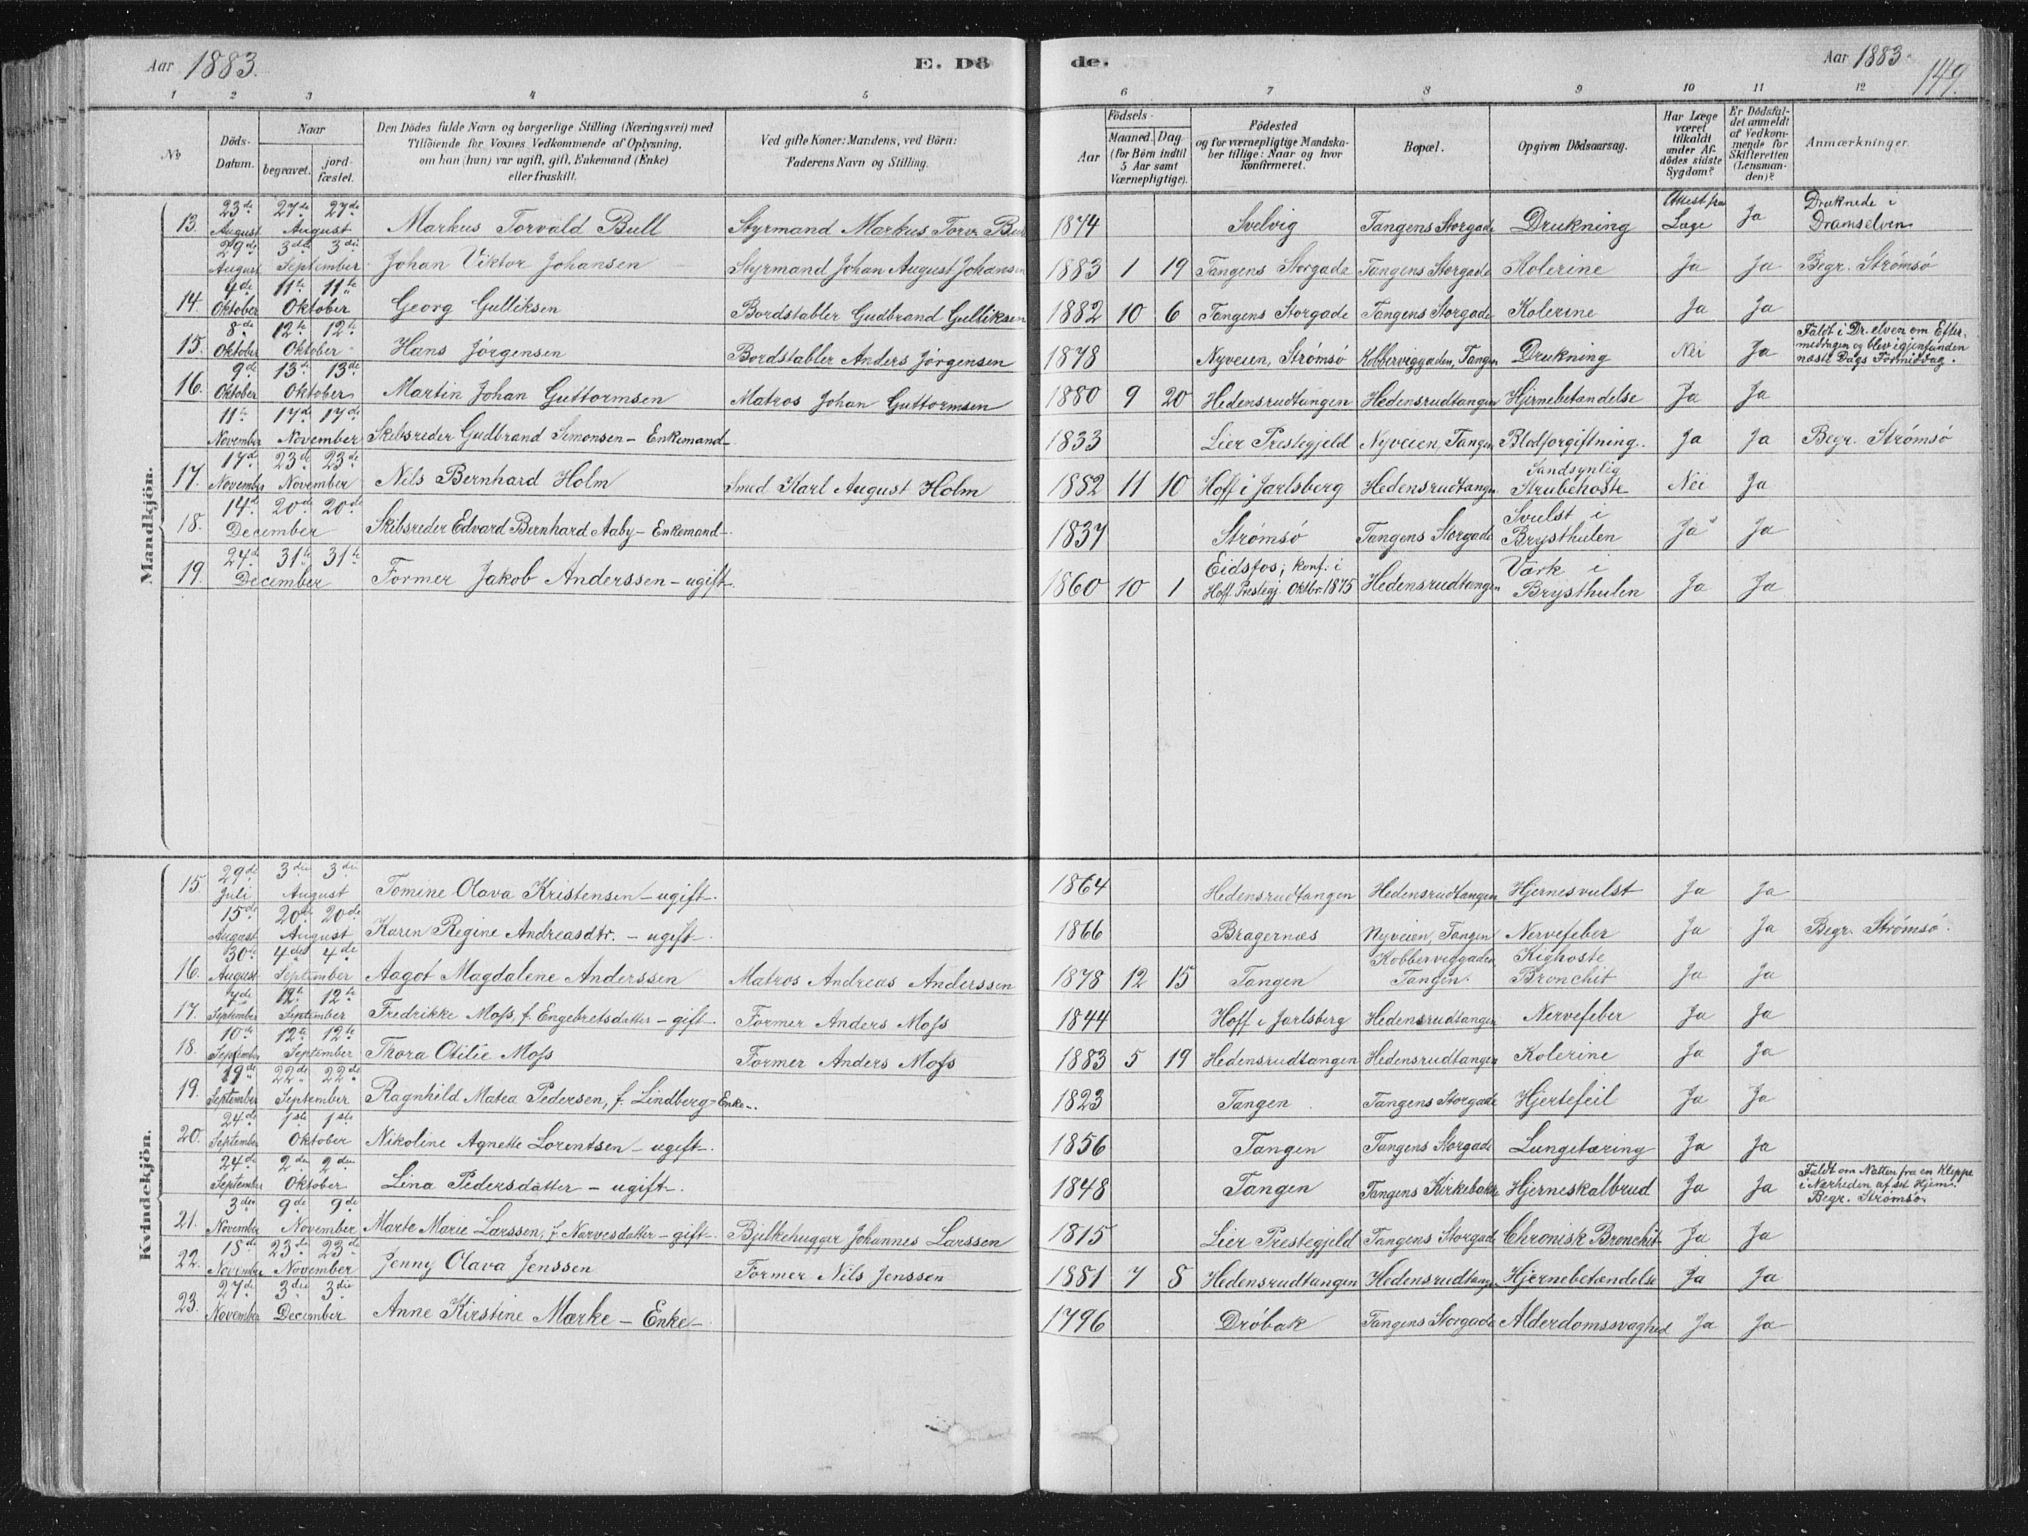 Aar 1883. E. Dö de. Aar 1883. 149.
1 2 3 4 5 6 7 8 9 10 11 12
No Döds-Datum. Naar begravet. jordfæstet. Den Dödes fulde Navn og borgerlige Stilling (Næringsvei) med Tilföiende for Voxnes Vedkommende af Oplysning, om han (hun) var ugift, gift, Enkemand (Enke) eller fraskilt. Ved gifte Koner: Mandens, ved Börn: Faderens Navn og Stilling. Födsels- Aar Maaned. Dag. (for Börn indtil 5 Aar samt Værnepligtige). Födested og for værnepligtige Mandskaber tillige: Naar og hvor konfirmeret. Bopæl. Opgiven Dödsaarsag. Har Læge været tilkaldt under Afdödes sidste Sygdom? Er Dödsfaldet anmeldt af Vedkommende for Skifteretten (Lensmanden)? Anmærkninger.
Mandkjön.
13. 23de August 27de 27de August Markus Torvald Bull Styrmand Markus Torv. Bull 1874 Svelvig Tangens Storgade Drukning Attest fra Læge Ja Druknede i Dramselven
29de August 3die 3die September Johan Viktor Johansen Styrmand Johan August Johansen 1883 1 19 Tangens Storgade Tangens Storgade Kolerine Ja Ja Begr. Strømsø
14. 4de Oktober 11te 11te Oktober Georg Gulliksen Bordstabler Gudbrand Gulliksen 1882 10 6 Tangens Storgade Tangens Storgade Kolerine Ja Ja
15. 8de Oktober 12te 12te Oktober Hans Jørgensen Bordstabler Anders Jørgensen 1878 Nyveien, Strømsø Kobberviggaden, Tangen Drukning Nei Ja Faldt i Dr.elven om Eftermiddagen og blev igjenfunden næste Dags Formiddag.
16. 9de Oktober 13de 13de Oktober Martin Johan Guttormsen Matros Johan Guttormsen 1880 9 20 Hedensrudtangen Hedensrudtangen Hjernebetændelse Ja Ja
11te November 17de 17de November Skibsreder Gudbrand Simonsen - Enkemand - 1833 Lier Prestegjeld Nyveien, Tangen Blodforgiftning. Ja Ja Begr. Strømsø
17. 17de November 23de 23de November Nils Bernhard Holm Smed Karl August Holm 1882 11 10 Hoff i Jarlsberg Hedensrudtangen Sandsynlig Strubehoste Nei Ja
18. 14de 20de 20de December Skibsreder Edvard Bernhard Aaby - Enkemand - 1837 Strømsø Tangens Storgade Svulst i Brysthulen Ja Ja
19. 24de 31te 31te December Former Jakob Anderssen - ugift. 1860 10 1 Eidsfos; konf. i Hoff Prestegj. Oktbr. 1875 Hedensrudtangen Værk i Brysthulen Ja Ja
Kvindekjön.
15. 29de Juli 3die 3die August Tomine Olava Kristensen - ugift. 1864 Hedensrudtangen Hedensrudtangen Hjernesvulst Ja Ja
15de August 20de 20de August Karen Regine Andreasdtr. - ugift. 1866 Bragernæs Nyveien, Tangen Nervefeber Ja Ja Begr. Strømsø.
16. 30te August 4de 4de September Aagot Magdalene Anderssen Matros Andreas Anderssen 1878 12 15 Tangen Kobberviggaden, Tangen. Kighoste Bronchit Ja Ja
17. 7de September 12te 12te September Fredrikke Moss, f. Engebretsdatter - gift. Former Anders Moss 1844 Hoff i Jarlsberg Hedensrudtangen Nervefeber Ja Ja
18. 10de September 12te 12te September Thora Otilie Moss Former Anders Moss 1883 5 19 Hedensrudtangen Hedensrudtangen Kolerine Ja Ja
19. 19de September 22de 22de September Ragnhild Matea Pedersen, f. Lindberg - Enke -. 1823 Tangen Tangens Storgade Hjertefeil Ja Ja
20. 24de September 1ste 1ste Oktober Nikoline Agnette Lorentsen - ugift. 1856 Tangen Tangens Storgade Lungetæring Ja Ja
24de September 2den 2den Oktober Lina Pedersdatter - ugift. 1848 Tangen Tangens Kirkebakke Hjerneskalbrud Ja Ja Faldt om Natten fra en Kleppe i Nærheden af sit Hjem. Begr. Strømsø.
21. 3die November 9de 9de November Marte Marie Larssen, f. Narvesdatter - gift. Bjelkehugger Johannes Larssen 1815 Lier Prestegjeld Tangens Storgade Chronisk Bronchit Ja Ja
22. 18de November 23de 23de November Jenny Olava Jenssen Former Nils Jenssen 1881 7 8 Hedensrudtangen Hedensrudtangen Hjernebetændelse Ja Ja
23. 27de November 3die 3die December Anne Kirstine Mørke - Enke - 1796 Drøbak Tangens Storgade Alderdomssvaghed Ja Ja